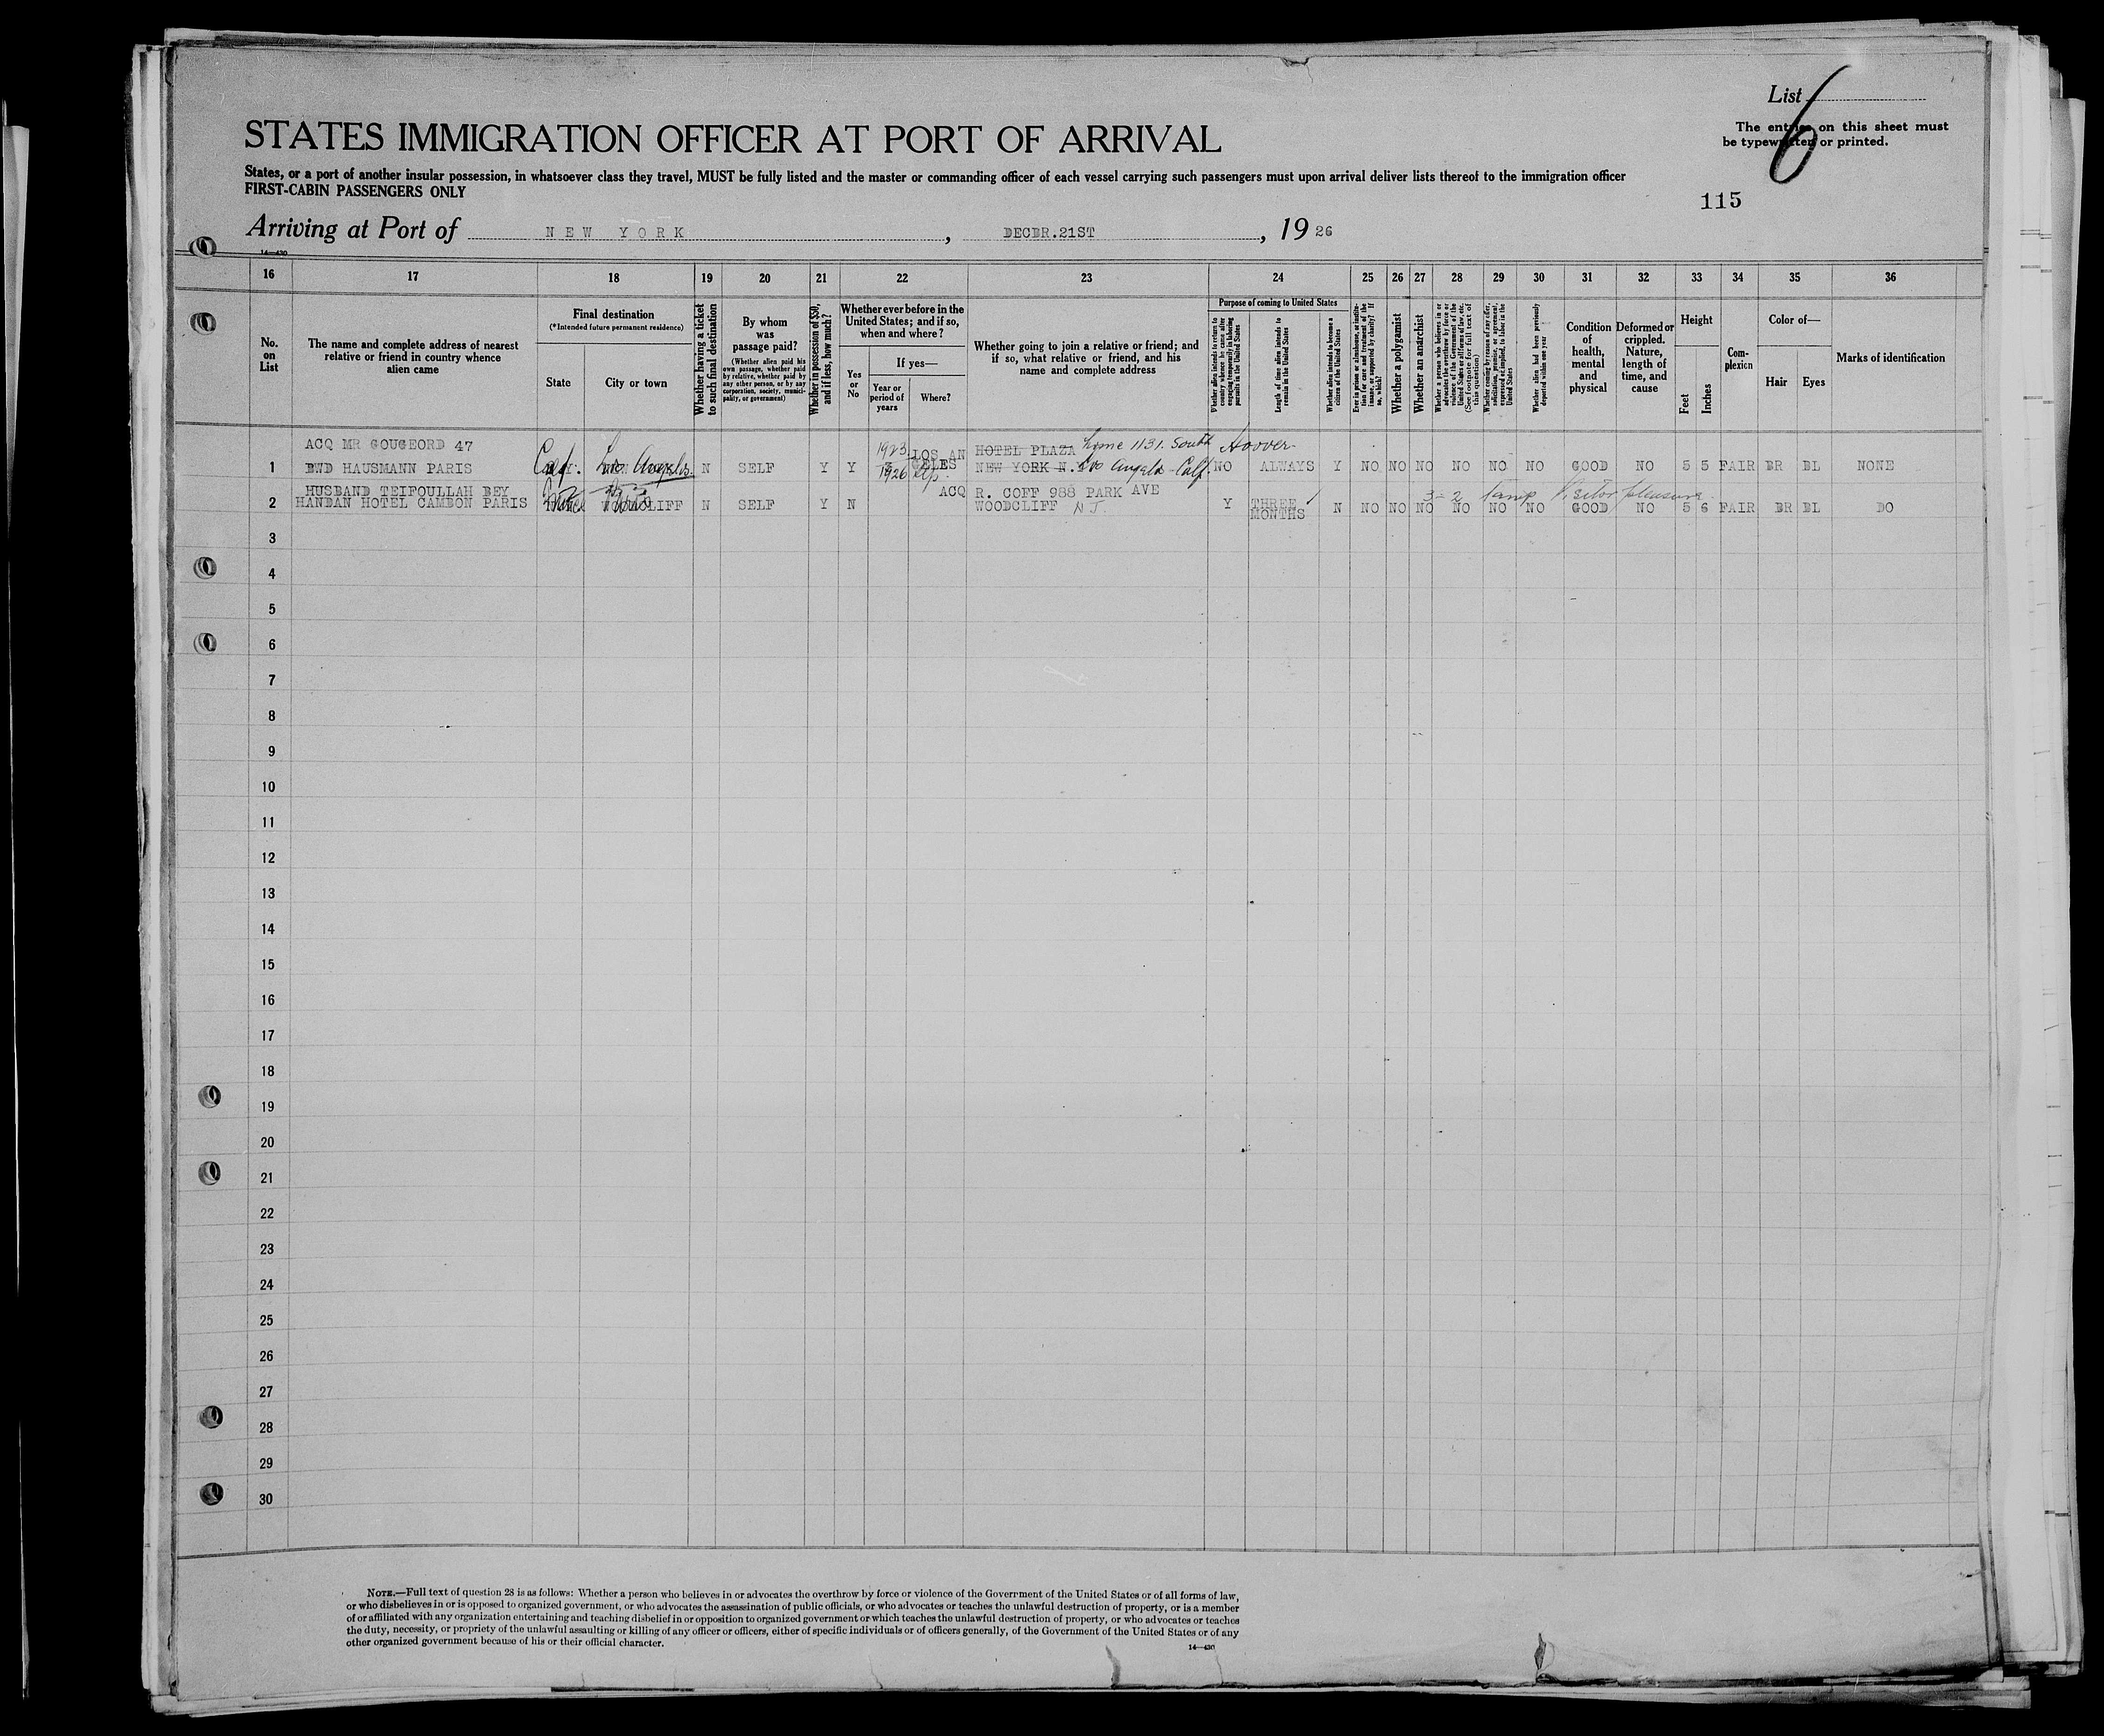 List 6
STATES IMMIGRATION OFFICER AT PORT OF ARRIVAL
The entries on this sheet must
be typewritten or printed.
States, or a port of another insular possession, in whatsoever class they travel, MUST be fully listed and the master or commanding officer of each vessel carrying such passengers must upon arrival deliver lists thereof to the immigration officer
FIRST-CABIN PASSENGERS ONLY
115
Arriving at Port of NEW YORK, DECBR.21ST, 1926
14—430
16 17 18 19 20 21 22 23 24 25 26 27 28 29 30 31 32 33 34 35 36
No. on List
The name and complete address of nearest relative or friend in country whence alien came
Final destination
(*Intended future permanent residence)
State
City or town
Whether having a ticket to such final destination
By whom was passage paid?
(Whether alien paid his own passage, whether paid by relative, whether paid by any other person, or by any corporation, society, municipality, or government)
Whether in possession of $50, and if less, how much?
Whether ever before in the United States; and if so, when and where?
Yes or No
If yes—
Year or period of years
Where?
Whether going to join a relative or friend; and if so, what relative or friend, and his name and complete address
Purpose of coming to United States
Whether alien intends to return to country whence he came after engaging temporarily in laboring pursuits in the United States
Length of time alien intends to remain in the United States
Whether alien intends to become a citizen of the United States
Ever in prison or almshouse, or institution for care and treatment of the insane, or supported by charity? If so, which?
Whether a polygamist
Whether an anarchist
Whether a person who believes in or advocates the overthrow by force or violence of the Government of the United States or all forms of law, etc. (See footnote for full text of this question)
Whether coming by reason of any offer, solicitation, promise, or agreement, expressed or implied, to labor in the United States
Whether alien had been previously deported within one year
Condition of health, mental and physical
Deformed or crippled. Nature, length of time, and cause
Height
Feet
Inches
Complexion
Color of—
Hair
Eyes
Marks of identification
ACQ MR GOUGEORD 47 1923 LOS AN HOTEL PLAZA home 1131. South Hoover
1 BWD HAUSMANN PARIS Calif. Los Angeles. N SELF Y Y 1926 GELES NEW YORK N. Los Angeles Calf. NO ALWAYS Y NO NO NO NO NO NO GOOD NO 5 5 FAIR BR BL NONE
HUSBAND TEIFOULLAH BEY ACQ R. COFF 988 PARK AVE 3-2 Temp Visitor pleasure
2 HANDAN HOTEL CAMBON PARIS WOODCLIFF N SELF Y N WOODCLIFF N J. Y THREE MONTHS N NO NO NO NO NO NO GOOD NO 5 6 FAIR BR BL DO
3
4
5
6
7
8
9
10
11
12
13
14
15
16
17
18
19
20
21
22
23
24
25
26
27
28
29
30
NOTE.—Full text of question 28 is as follows: Whether a person who believes in or advocates the overthrow by force or violence of the Government of the United States or of all forms of law,
or who disbelieves in or is opposed to organized government, or who advocates the assassination of public officials, or who advocates or teaches the unlawful destruction of property, or is a member
of or affiliated with any organization entertaining and teaching disbelief in or opposition to organized government or which teaches the unlawful destruction of property, or who advocates or teaches
the duty, necessity, or propriety of the unlawful assaulting or killing of any officer or officers, either of specific individuals or of officers generally, of the Government of the United States or of any
other organized government because of his or their official character.
14—430